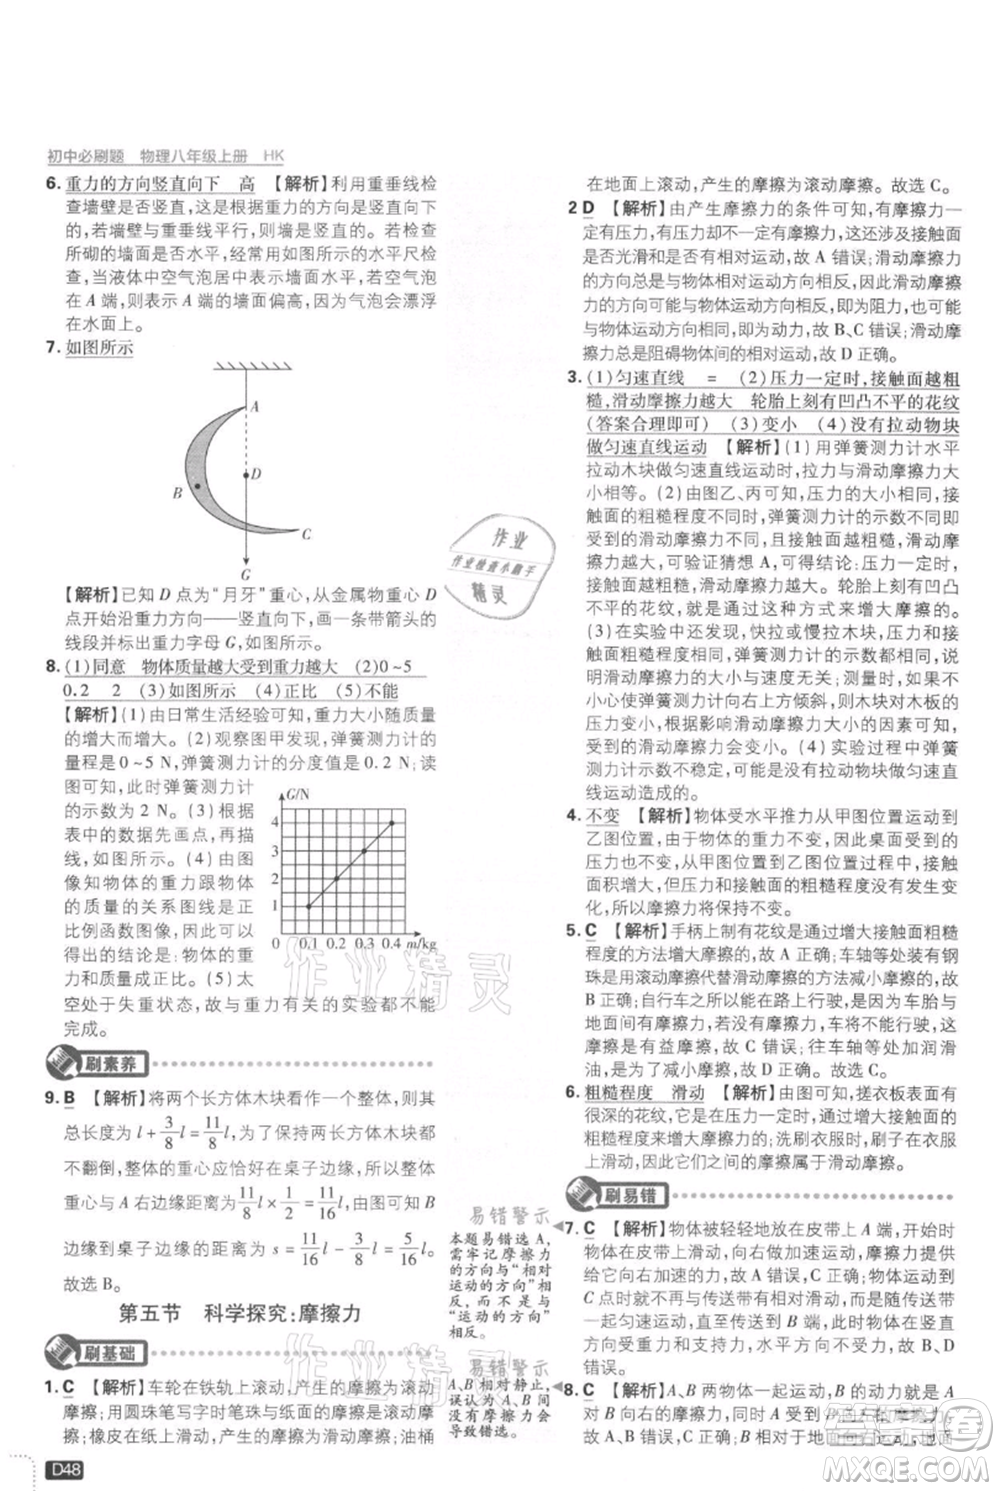 初中必刷题　物理八年级上册　HK
6. 重力的方向竖直向下　高　【解析】利用重垂线检
查墙壁是否竖直，这是根据重力的方向是竖直向下
的，若墙壁与重垂线平行，则墙壁是竖直的。检查
所砌的墙面是否水平，若空气泡居中表示墙面水
平，当液体中空气泡居中表示墙面水平，若空气泡
在 A 端，则表示 A 端的墙面偏高，因为气泡会漂浮
在水面上。
7. 如图所示
A
B
D
C
G
【解析】已知 D 点为“月牙”重心，从金属物重心 D
点开始沿重力方向——竖直向下，画一条带箭头的
线段并标出重力字母 G，如图所示。
8. (1)同意　物体质量越大受到重力越大　(2)0～5
0.2　2　(3)如图所示　(4)正比　(5)不能
【解析】(1)由日常生活经验可知，重力大小随质量
的增大而增大。(2)观察图甲发现，弹簧测力计的
量程是 0～5 N，弹簧测力计的分度值是 0.2 N；读
图可知，此时弹簧测力计
的示数为 2 N。(3)根据
表中的数据先画点，再描
线，如图所示。(4)由图
像知物体的重力跟物体
的质量的关系图线是正
比例函数图像，所以可以
得出的结论是：物体的重
力和质量成正比。(5)太
空处于失重状态，故与重力有关的实验都不能
完成。
G/N
4
3
2
1
0　0.1　0.2　0.3　0.4 m/kg
刷素养
9. B　【解析】将两个长方体木块看作一个整体，则其
总长度为 l + 3/8 l = 11/8 l，为了保持两长方体木块都
不翻倒，则整体的重心应在桌子边缘，此时整体的
重心与 A 右边缘的距离 11/8 l × 1/2 = 11/16 l，由图可知 B
边缘到桌子边缘的距离 s = 11/16 l − 3/8 l = 5/16 l。故
选 B。
第五节　科学探究：摩擦力
刷基础
1. C　【解析】车轮在铁轨上滚动，产生的摩擦为滚动
摩擦；用圆珠笔写字时笔珠与纸面的摩擦为滚动摩
擦；木箱在地面上滑动，产生的摩擦为滑动摩擦；油桶
D48
在地面上滚动，产生的摩擦为滚动摩擦。故选 C。
2 D　【解析】由产生摩擦力的条件可知，有摩擦力一
定有压力，有压力不一定有摩擦力，还要看接触面
是否光滑和是否有相对运动，故 A 错误；滑动摩擦力
的方向总是与相对运动方向相反，因此滑动摩擦力
的方向可能与物体运动方向相反，即为阻力，也可能
与物体运动方向相同，即为动力，故 B、C 错误；滑动摩
擦力总是阻碍物体间的相对运动，故 D 正确。
3. (1)匀速直线　=　(2)压力一定时，接触面越粗
糙，滑动摩擦力越大　轮胎上刻有凹凸不平的花纹
(答案合理即可)　(3)变小　(4)没有拉动物块
做匀速直线运动　【解析】(1)用弹簧测力计水平
拉动木块做匀速直线运动时，拉力与滑动摩擦力大
小相等。(2)由图乙、丙可知，压力的大小相等，接
触面的粗糙程度不同，弹簧测力计的示数不同，丙
的示数大于乙的示数，接触面越粗糙，示数越大，滑
动摩擦力越大，可验证猜想 A，可得出结论：压力一
定时，接触面越粗糙，滑动摩擦力越大。轮胎上有凹凸
不平的花纹，就是通过这种方式来增大摩擦的。
(3)在实验中还发现，快拉或慢拉木块，弹簧测力计
的示数都比匀速拉动时的示数要小，示数变小，说
明滑动摩擦力变小，摩擦力变小可能是由于在操作
时，测量时测力计向右上方倾斜，则木块对木板的
压力变小，根据影响滑动摩擦力大小的因素可知，
受到的滑动摩擦力会变小。(4)实验过程中，弹簧
测力计示数不稳定，可能是没有拉动物块做匀速直
线运动造成的。
4. 不变　【解析】物体受水平推力从甲图位置运动到
乙图位置，由于物体的重力不变，因此桌面受到的
压力也不变，从甲图位置到乙图位置过程中，物体
与桌面接触面的粗糙程度没有发生变
化，所以，摩擦力将保持不变。
5. C　【解析】手柄上制有花纹是通过增大接触面粗糙
程度的方法增大摩擦的，故 A 正确；车轴等处装有钢
珠是用滚动摩擦代替滑动摩擦的方法减小摩擦的，
故 B 正确；自行车在水平路上行驶时，车胎与
地面间有摩擦力，没有摩擦力，车将不能行驶，
故摩擦力不为零，故 C 错误；往车轴处加润滑
油，是为了减小摩擦，故 D 正确。故选 C。
6. 粗糙程度　滑动　【解析】由图可知，搓衣板表面有
很深的花纹，是在压力一定时，通过增大接触面的
粗糙程度来增大摩擦力的；洗刷衣服时，刷子在衣服
上滑动，因此它们之间的摩擦属于滑动摩擦。
刷易错
易错警示
本题易错选 A，
需牢记摩擦力
的方向与“相对
运动的方向”相
反，而不是与
“运动的方向”
相反。
7. C　【解析】物体被轻轻地放在皮带上 A 端，开始时
物体在皮带上滑动，向右做加速运动，摩擦力提供
向右加速的力，故 A 错误，C 正确；当物体加速到
C 点时不再与传送带发生相对滑动，而是与传送带一
起匀速向右运动，故 D 错误；此时，物体只受竖直方
向重力和支持力，水平方向不受力，故 B 错误。
易错警示
A、B 相对静止，
误认为 A、B 之
间没有摩擦力
会导致错选。
8. C　【解析】A、B 两物体一起运动，B 的运动必然受